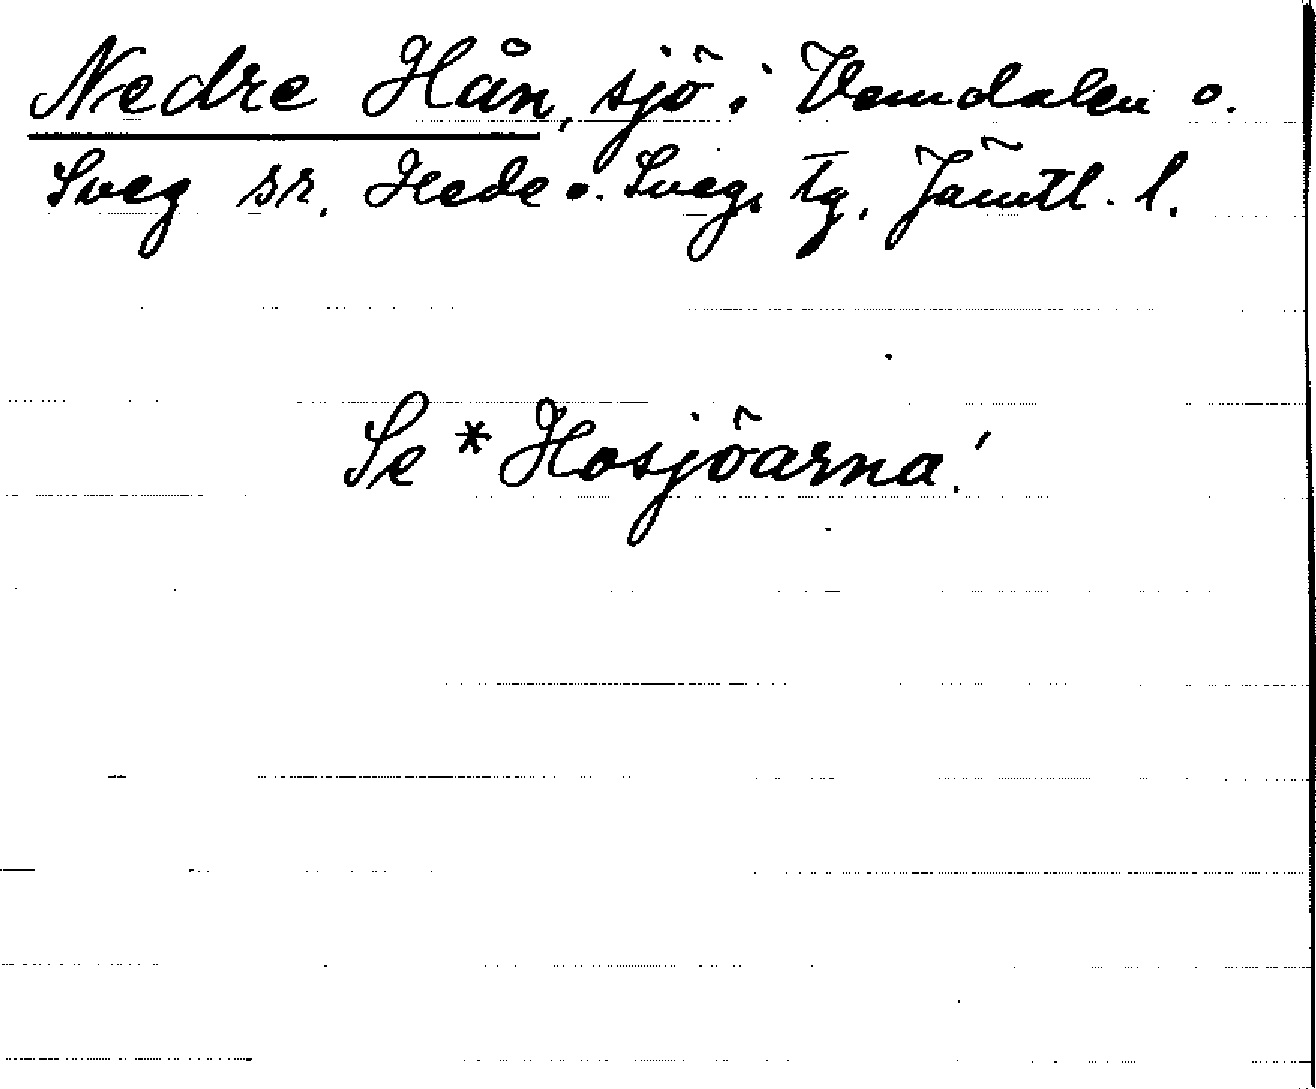 Nedre Hån, sjö i Vemdalen o.
Sveg sr. Hede o. Svegs tg. Jämtl. l.
Se *Hosjöarna!